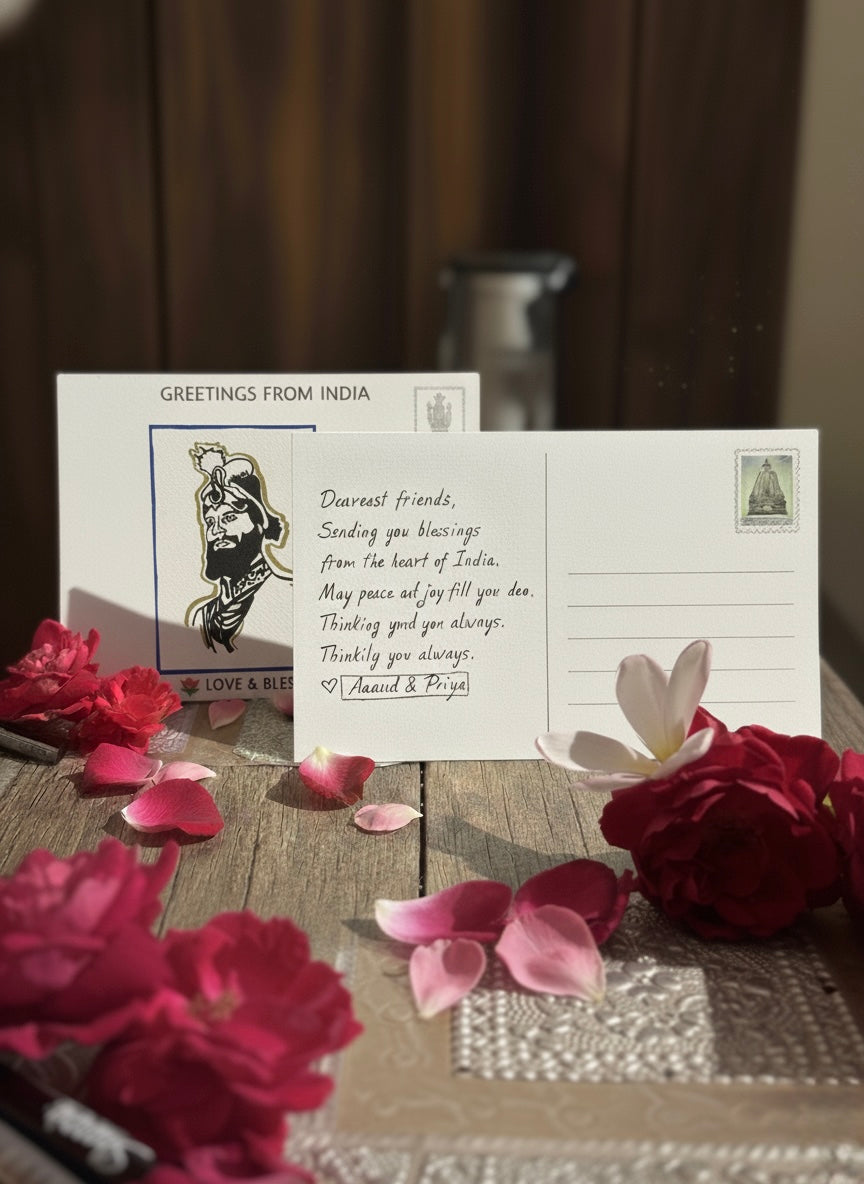 GREETINGS FROM INDIA
LOVE & BLES
Dearest friends,
Sending you blessings
from the heart of India.
May peace and joy fill you deo.
Thinkiog ymd yon always.
Thinkily you always.
♡ Aaaud & Priya